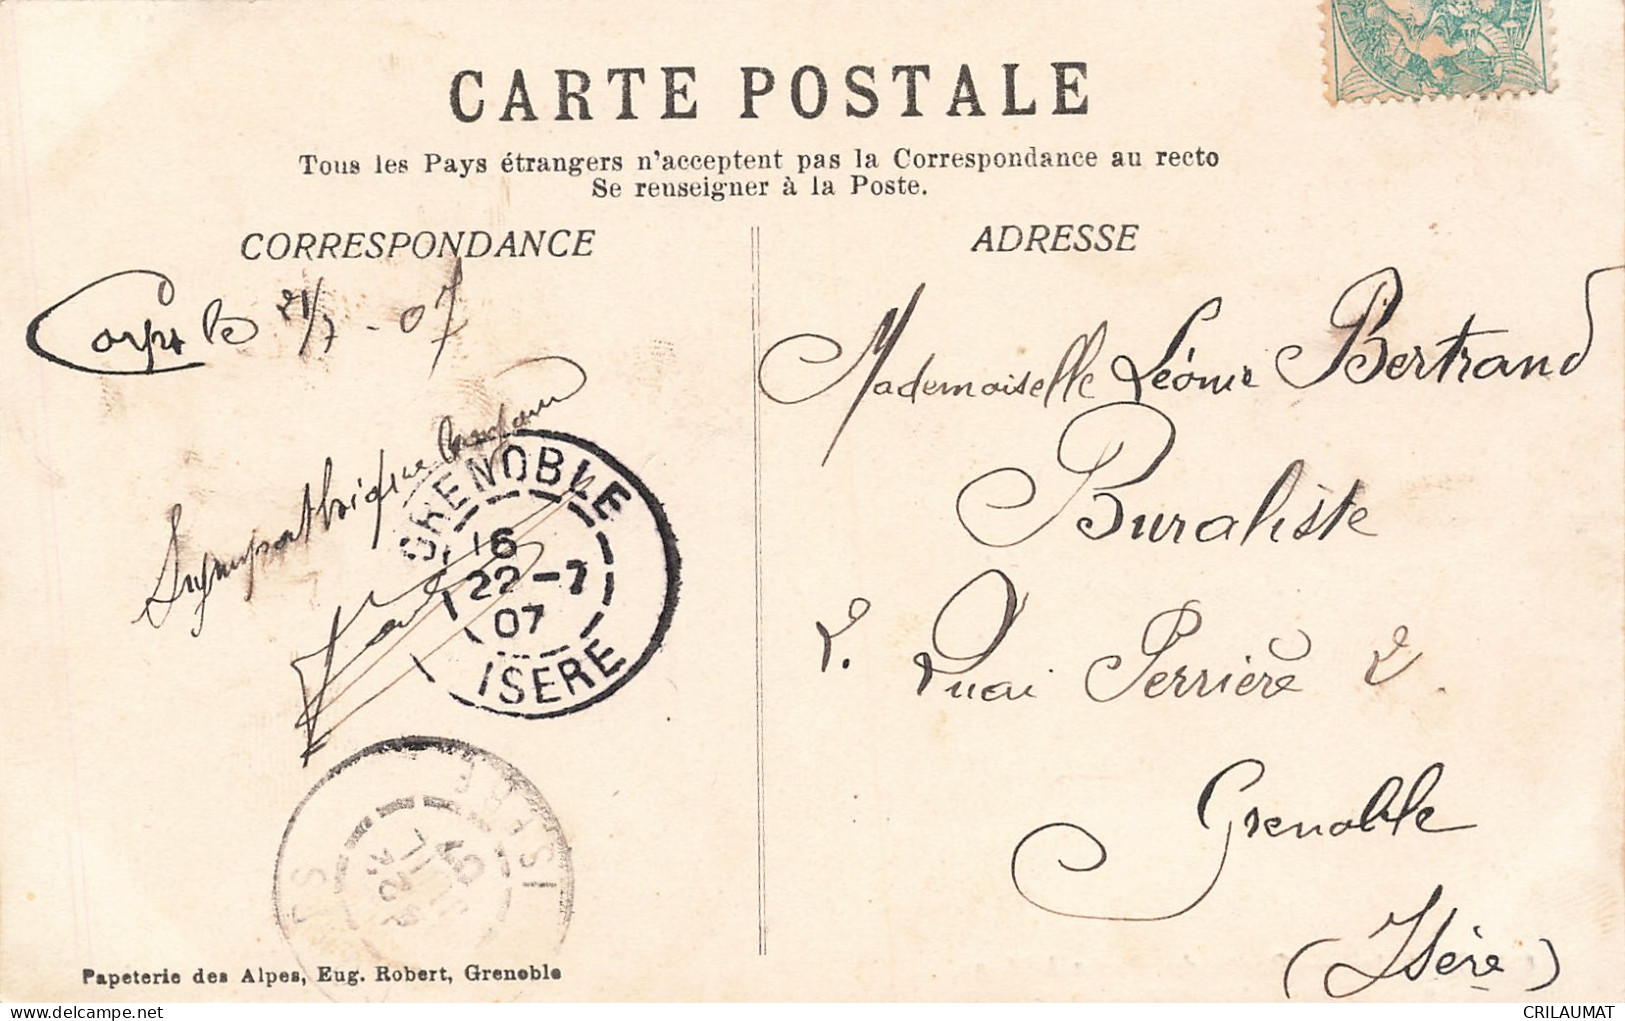 CARTE POSTALE
Tous les Pays étrangers n'acceptent pas la Correspondance au recto
Se renseigner à la Poste.
CORRESPONDANCE
ADRESSE
Corps le 21/7 - 07
Sympathique
GRENOBLE
16
22-7
07
ISERE
ISERE
Mademoiselle Léonie Bertrand
Buraliste
2. Quai Perrière 2.
Grenoble
(Isère)
Papeterie des Alpes, Eug. Robert, Grenoble
CRILAUMAT